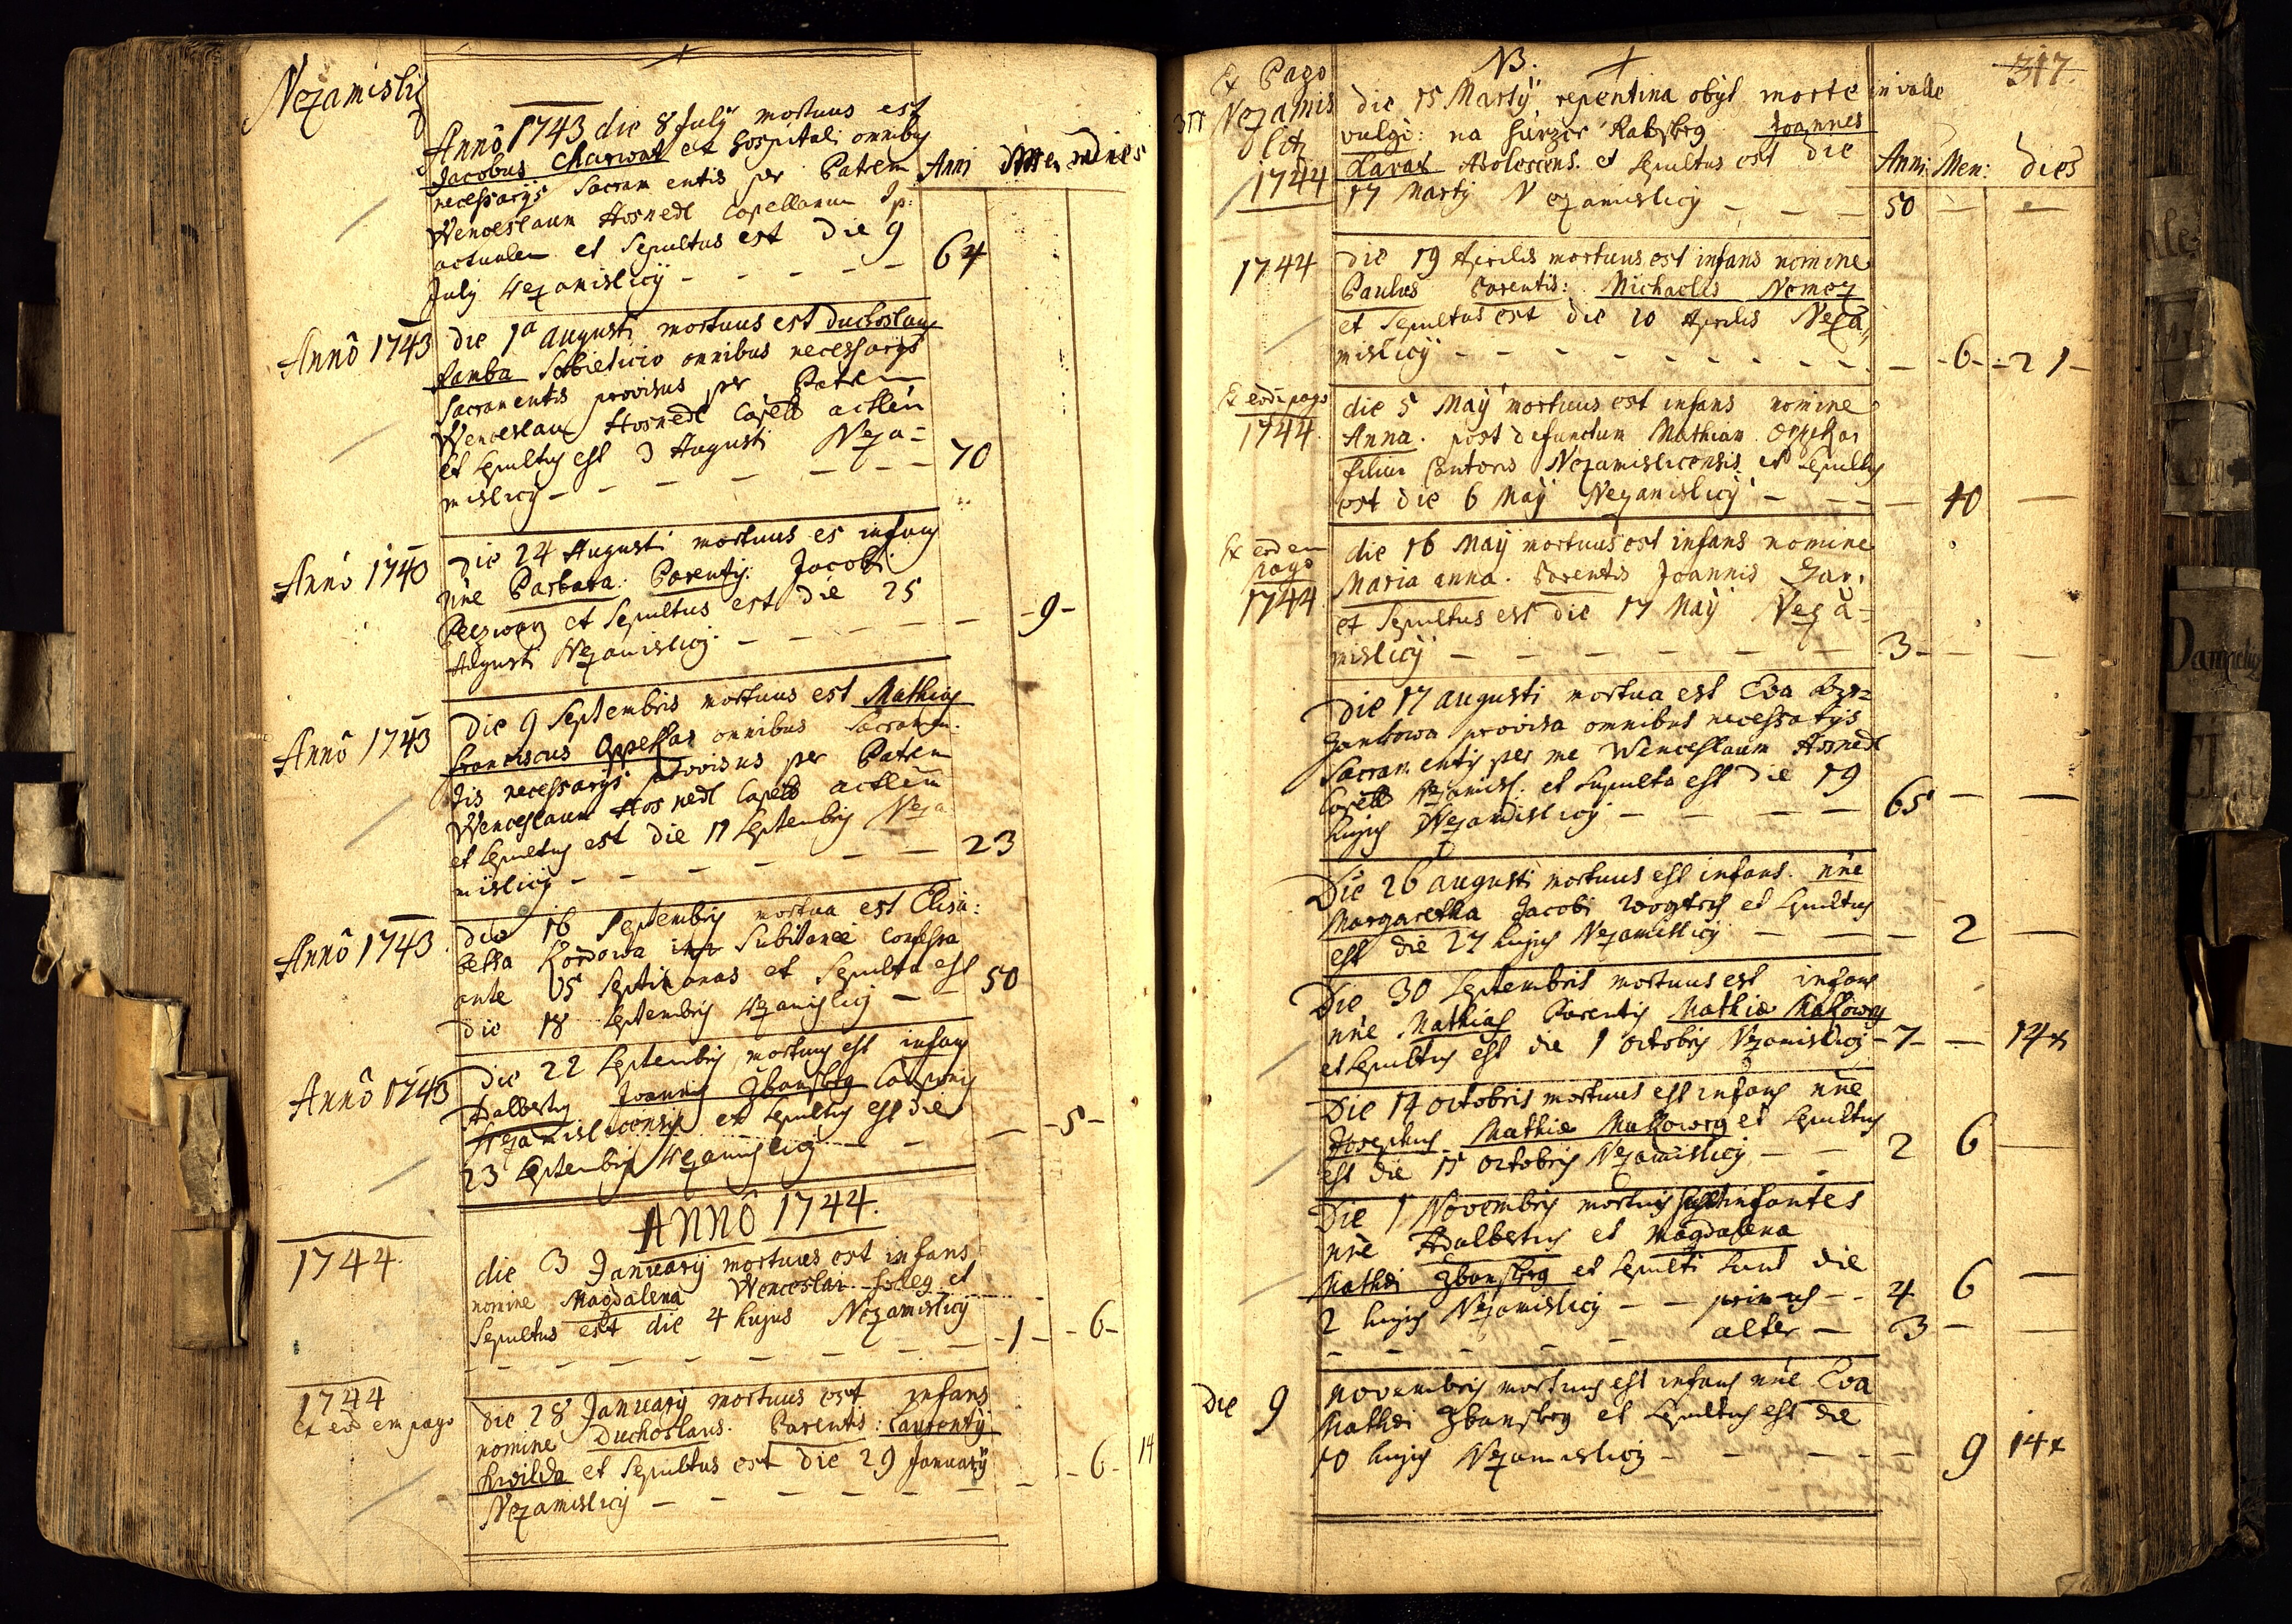 Nezamislicz
Annô 1743 die 8 July mortuus est
Jacobus Charwat ex hospitali omnibg
necessarijs Sacramentis per Patrem
Wenceslaum Hosnedl Capellanum Ip:
actualem et Sepultus est die 9
July Nezamislicij - - - - - 64
Anni Men dies
Annô 1743 die 1a Augusti mortuus est Duchoslaus
omnibus necessarijs
Sacramentis provisus per Patrem
Wenceslaum Hosnedl Capell
et Sepultus est 3 Augusti Neza=
mislicij - - - - - 70
Annô 1743 die 24 Augusti mortuus es infans
nne Barbara: Parentis: Jacobi
et Sepultus est die 25
Augusti Nezamislicij - - - - - 9 -
Annô 1743 Die 9 Septembris mortuus est Mathias
Franciscus Oppekar omnibus Sacramen:
tis necessarijs provisus per Patrem
Wenceslaum Hosnedl Capell
et Sepultus est die 11 Septembris Neza
mislicij - - - - - 23
Annô 1743 die 16 Septembris mortua est Elisa:
betha Subitanee confessa
ante Septimanas et Sepulta est
die 18 Septembris Nezamislicij - - 50
Annô 1743 Die 22 Septembris mortuus est infans
Adalbertus Joannis
Nezamislicensis et Sepultus est die
23 Septembris Nezamislicij - - - 5 -
ANNÔ 1744.
1744. die 3 January mortuus est infans
nomine Magdalena Wenceslai et
Sepultus est die 4 hujus Nezamislicij
- - - - - - - 1 - - 6 -
1744
Ex eodem pago
die 28 January mortuus est infans
nomine Duchoslaus. Parentis: Laurentij
et Sepultus est die 29 January
Nezamislicij - - - - - - 6 - 14
Ex Pago
Nezamis
licz
1744
NB.
317.
die 15 Martij repentina obijt morte in valle
vulgò: na Joannes
Adolescens. et Sepultus est die
17 Martij Nezamislicij - - - 50 - -
Anni: Men: dies
1744 die 19 Aprilis mortuus est infans nomine
Paulus Parentis: Michaelis Nemez
et Sepultus est die 20 Aprilis Neza,,
mislicij - - - - - - - - 6 - 21 -
Ex eodē pago
1744. die 5 Maij mortuus est infans nomine
Anna. post defunctum Mathiam Oppekar
filia Cantoris Nezamislicensis et Sepultus
est die 6 Maij Nezamislicij - - - 10 -
Ex eodem
pago
1744 die 16 Maij mortuus est infans nomine
Maria anna. Parentis Joannis
et Sepultus est die 17 Maij Neza=
mislicij - - - - - - 3 - - -
Die 17 augusti mortua est Eva
provisa omnibus necessarijs
Sacramentis per me Wenceslaum Hosnedl
Capell Nezamisl: et Sepulta est die 19
hujus Nezamislicij - - - - 65 - -
Die 26 augusti mortuus est infans. nne
Margaretha Jacobi et Sepultus
est die 27 hujus Nezamislicij - - - 2 -
Die 30 Septembris mortuus est infans
nne Mathias Parentis Mathiæ
et Sepultus est die 1 octobris Nezamislicij - 7 - - 14
Die 14 octobris mortuus est infans nne
Josephus Mathiæ et Sepultus
est die 15 octobris Nezamislicij - - 2 6 -
Die 1 Novembris infantes
nne Adalbertus et Magdalena
Mathæi et Sepulti sunt die
2 hujus Nezamislicij - - primus - - 4 6 -
- - - - alter - 3 - -
Die 9 novembris mortuus est infans nne Eva
Mathæi et Sepultus est die
10 hujus Nezamislicij - - - - - 9 14